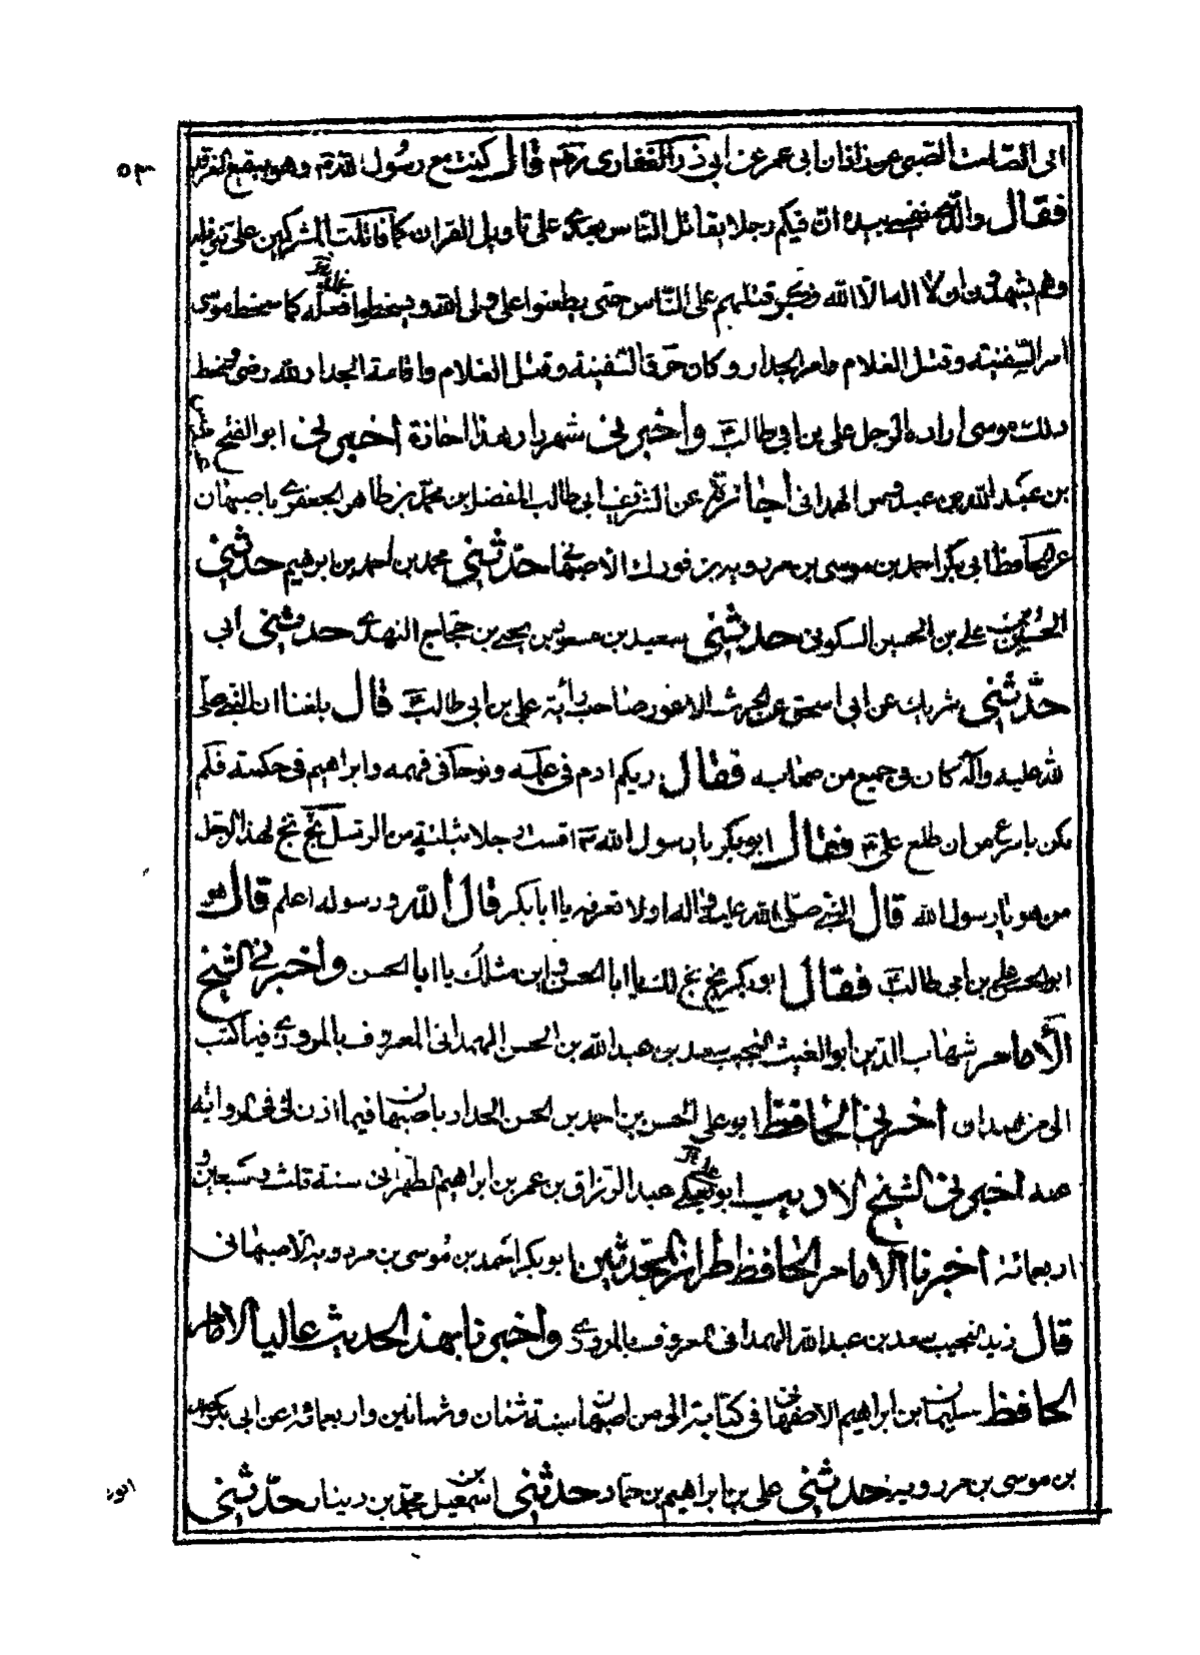 ابى الصامت الضبى عن زاذان ابى عمر عن ابى ذر الغفارى رض قال كنت مع رسول الله ص وهو ببقيع الغرقد
٥٣
فقال والذى نفسى بيده ان فيكم رجلا يقاتل الناس بعدى على تاويل القران كما قاتلت المشركين على تنزيله
وهم يشهدون ان لا اله الا الله فيكبر قتلهم على الناس حتى يطعنوا على ولى الله ويسخطوا فعله كما سخط موسى
امر السفينة وقتل الغلام وامر الجدار وكان خرق السفينة وقتل الغلام واقامة الجدار لله رضى وسخط
ذلك موسى اراد بالرجل على بن ابى طالب ع واخبرنى شهردار هذا اجازة اخبرنى ابو الفتح
بن عبد الله بن عبدوس الهمدانى اجازة عن الشريف ابى طالب المفضل بن محمد بن طاهر الجعفرى باصبهان
عن الحافظ ابى بكر احمد بن موسى بن مردويه بن فورك الاصبهانى حدثنى محمد بن احمد بن ابرهيم حدثنى
الحسين بن على بن الحسين السكونى حدثنى سعيد بن مسعود بن يحيى بن حجاج النهدى حدثنى ابى
حدثنى شريك عن ابى اسحق عن الحرث الاعور صاحب راية على بن ابى طالب ع قال بلغنا ان النبى صلى
الله عليه وآله كان فى جميع من صحابه فقال اريكم ادم فى علمه ونوحا فى فهمه وابراهيم فى حكمته فلم
يكن باسرع من ان طلع على ع فقال ابو بكر يا رسول الله ص اقست رجلا بثلثة من الرسل بخ بخ لهذا الرجل
من هو يا رسول الله قال النبى صلى الله عليه واله او لا تعرفه يا ابا بكر قال الله ورسوله اعلم قال هو
ابو الحسن على بن ابى طالب ع فقال ابو بكر بخ بخ لك يا ابا الحسن واين مثلك يا ابا الحسن واخبرنى الشيخ
الامام شهاب الدين ابو الغيث النجيب سعد بن عبد الله بن الحسن الهمدانى المعروف بالمروزى فيما كتب
الى من همدان اخبرنى الحافظ ابو على الحسن بن احمد بن الحسن الحداد باصبهان فيما اذن لى فى الرواية
عنه اخبرنى الشيخ الاديب ابو يعلى عبد الرزاق بن عمر بن ابراهيم الطهرانى سنة ثلث وسبعين و
اربعمائة اخبرنا الامام الحافظ طراز المحدثين ابو بكر احمد بن موسى بن مردويه الاصبهانى
قال النجيب سعد بن عبد الله الهمدانى المعروف بالمروزى واخبرنا بهذا الحديث عاليا الامام
الحافظ سليمان بن ابراهيم الاصفهانى فى كتابة الى من اصبهان سنة ثمان وثمانين واربعمائة عن ابى بكر
بن موسى بن مردويه حدثنى على بن ابراهيم بن حماد حدثنى اسمعيل بن محمد بن دينار حدثنى